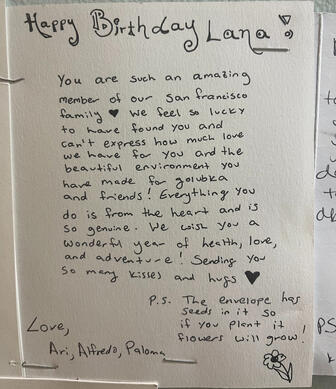 Happy Birthday Lana!
You are such an amazing
member of our San Francisco
family ♥ We feel so lucky
to have found you and
can't express how much love
we have for you and the
beautiful environment you
have made for golubka
and friends! Everything you
do is from the heart and is
so genuine. We wish you a
wonderful year of health, love,
and adventure! Sending you
so many kisses and hugs ♥
P.S. The envelope has
seeds in it so
if you plant it
flowers will grow!
Love,
Ari, Alfredo, Paloma
P.S